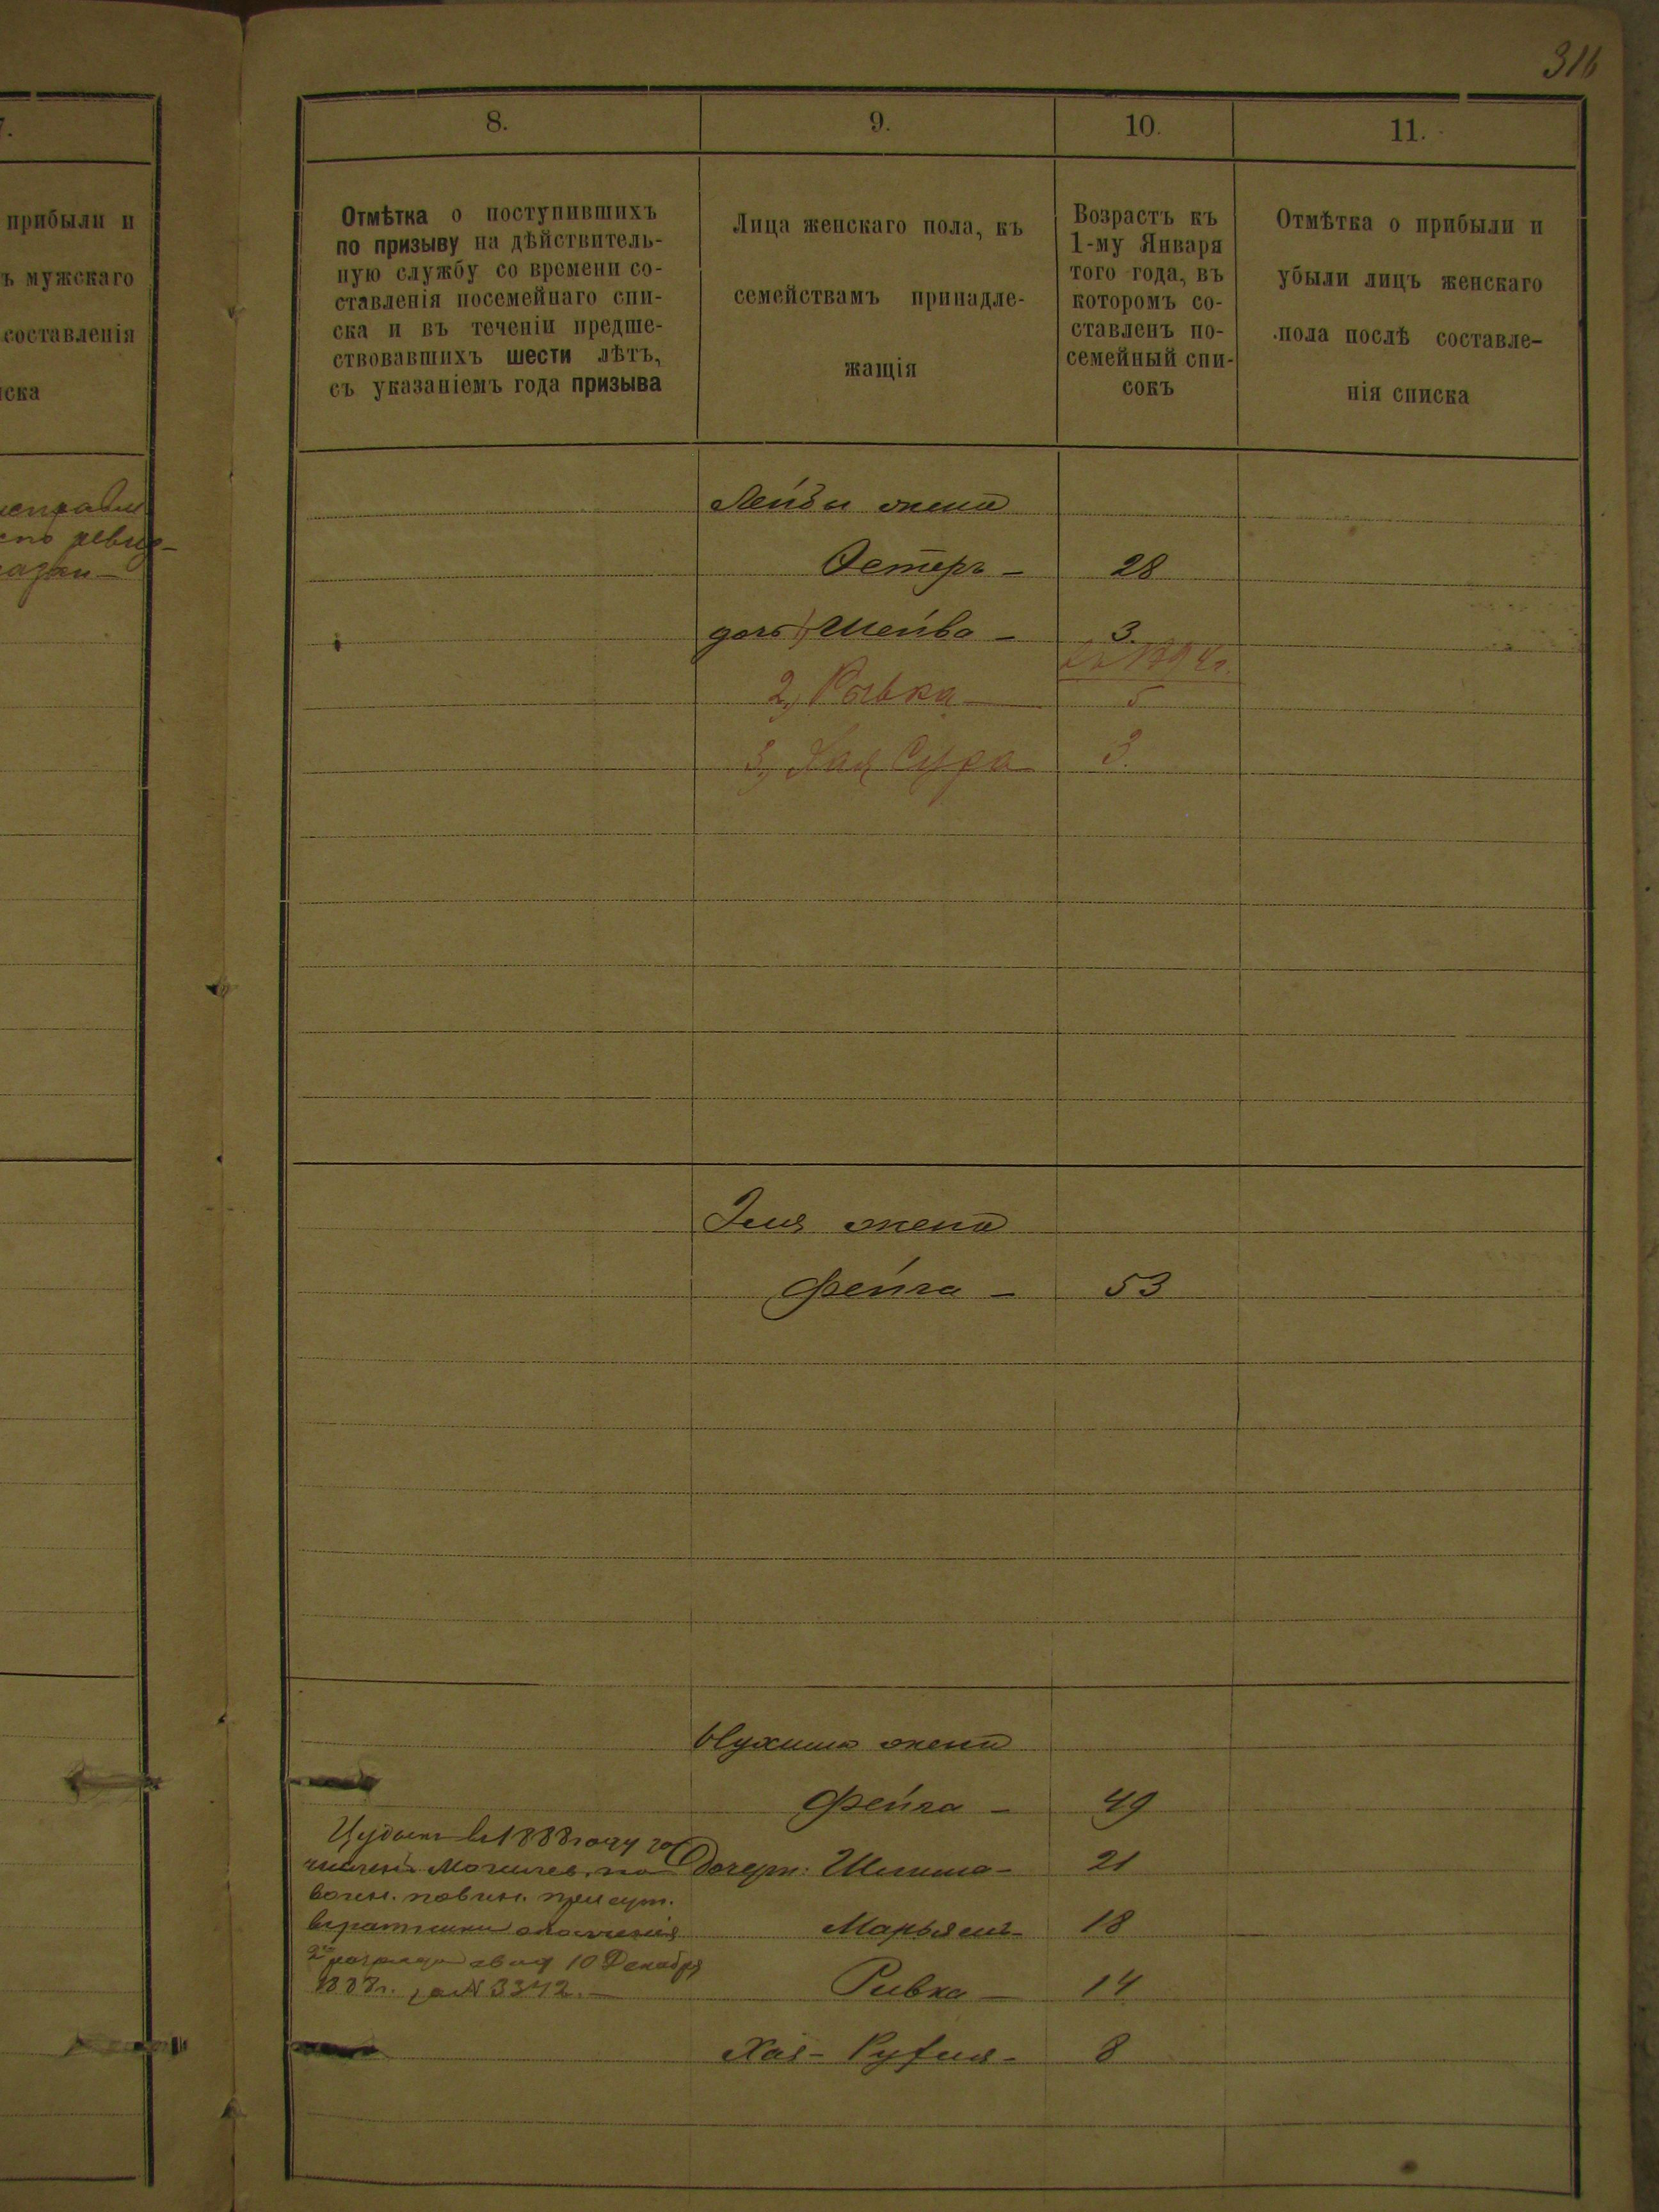 316
7.
прибыли и
ъ мужскаго
составленія
иска
8.
9.
10.
11.
Отмѣтка о поступившихъ
по призыву на дѣйствитель-
ную службу со времени со-
ставленія посемейнаго спи-
ска и въ теченіи предше-
ствовавшихъ шести лѣтъ,
съ указаніемъ года призыва
Лица женскаго пола, къ
семействамъ принадле-
жащія
Возрастъ къ
1-му Января
того года, въ
которомъ со-
ставленъ по-
семейный спи-
сокъ
Отмѣтка о прибыли и
убыли лицъ женскаго
пола послѣ составле-
нія списка
Лейбы жена
Эстеръ - 28
дочь 1) Шейва - 3.
къ 1894 г.
2) Рывка 5
3) Хая Сура 3.
жена
Фейга - 53
Нухима жена
Фейга - 49
въ 1888 году за
численъ Могилев. по
воин. повин. присут.
въ ратники ополченія
2го разряда 10 Декабря
1888 г. за N 3342. -
Дочери: Шишма - 21
Марьямъ - 18
Ривка - 14
Хая - - 8